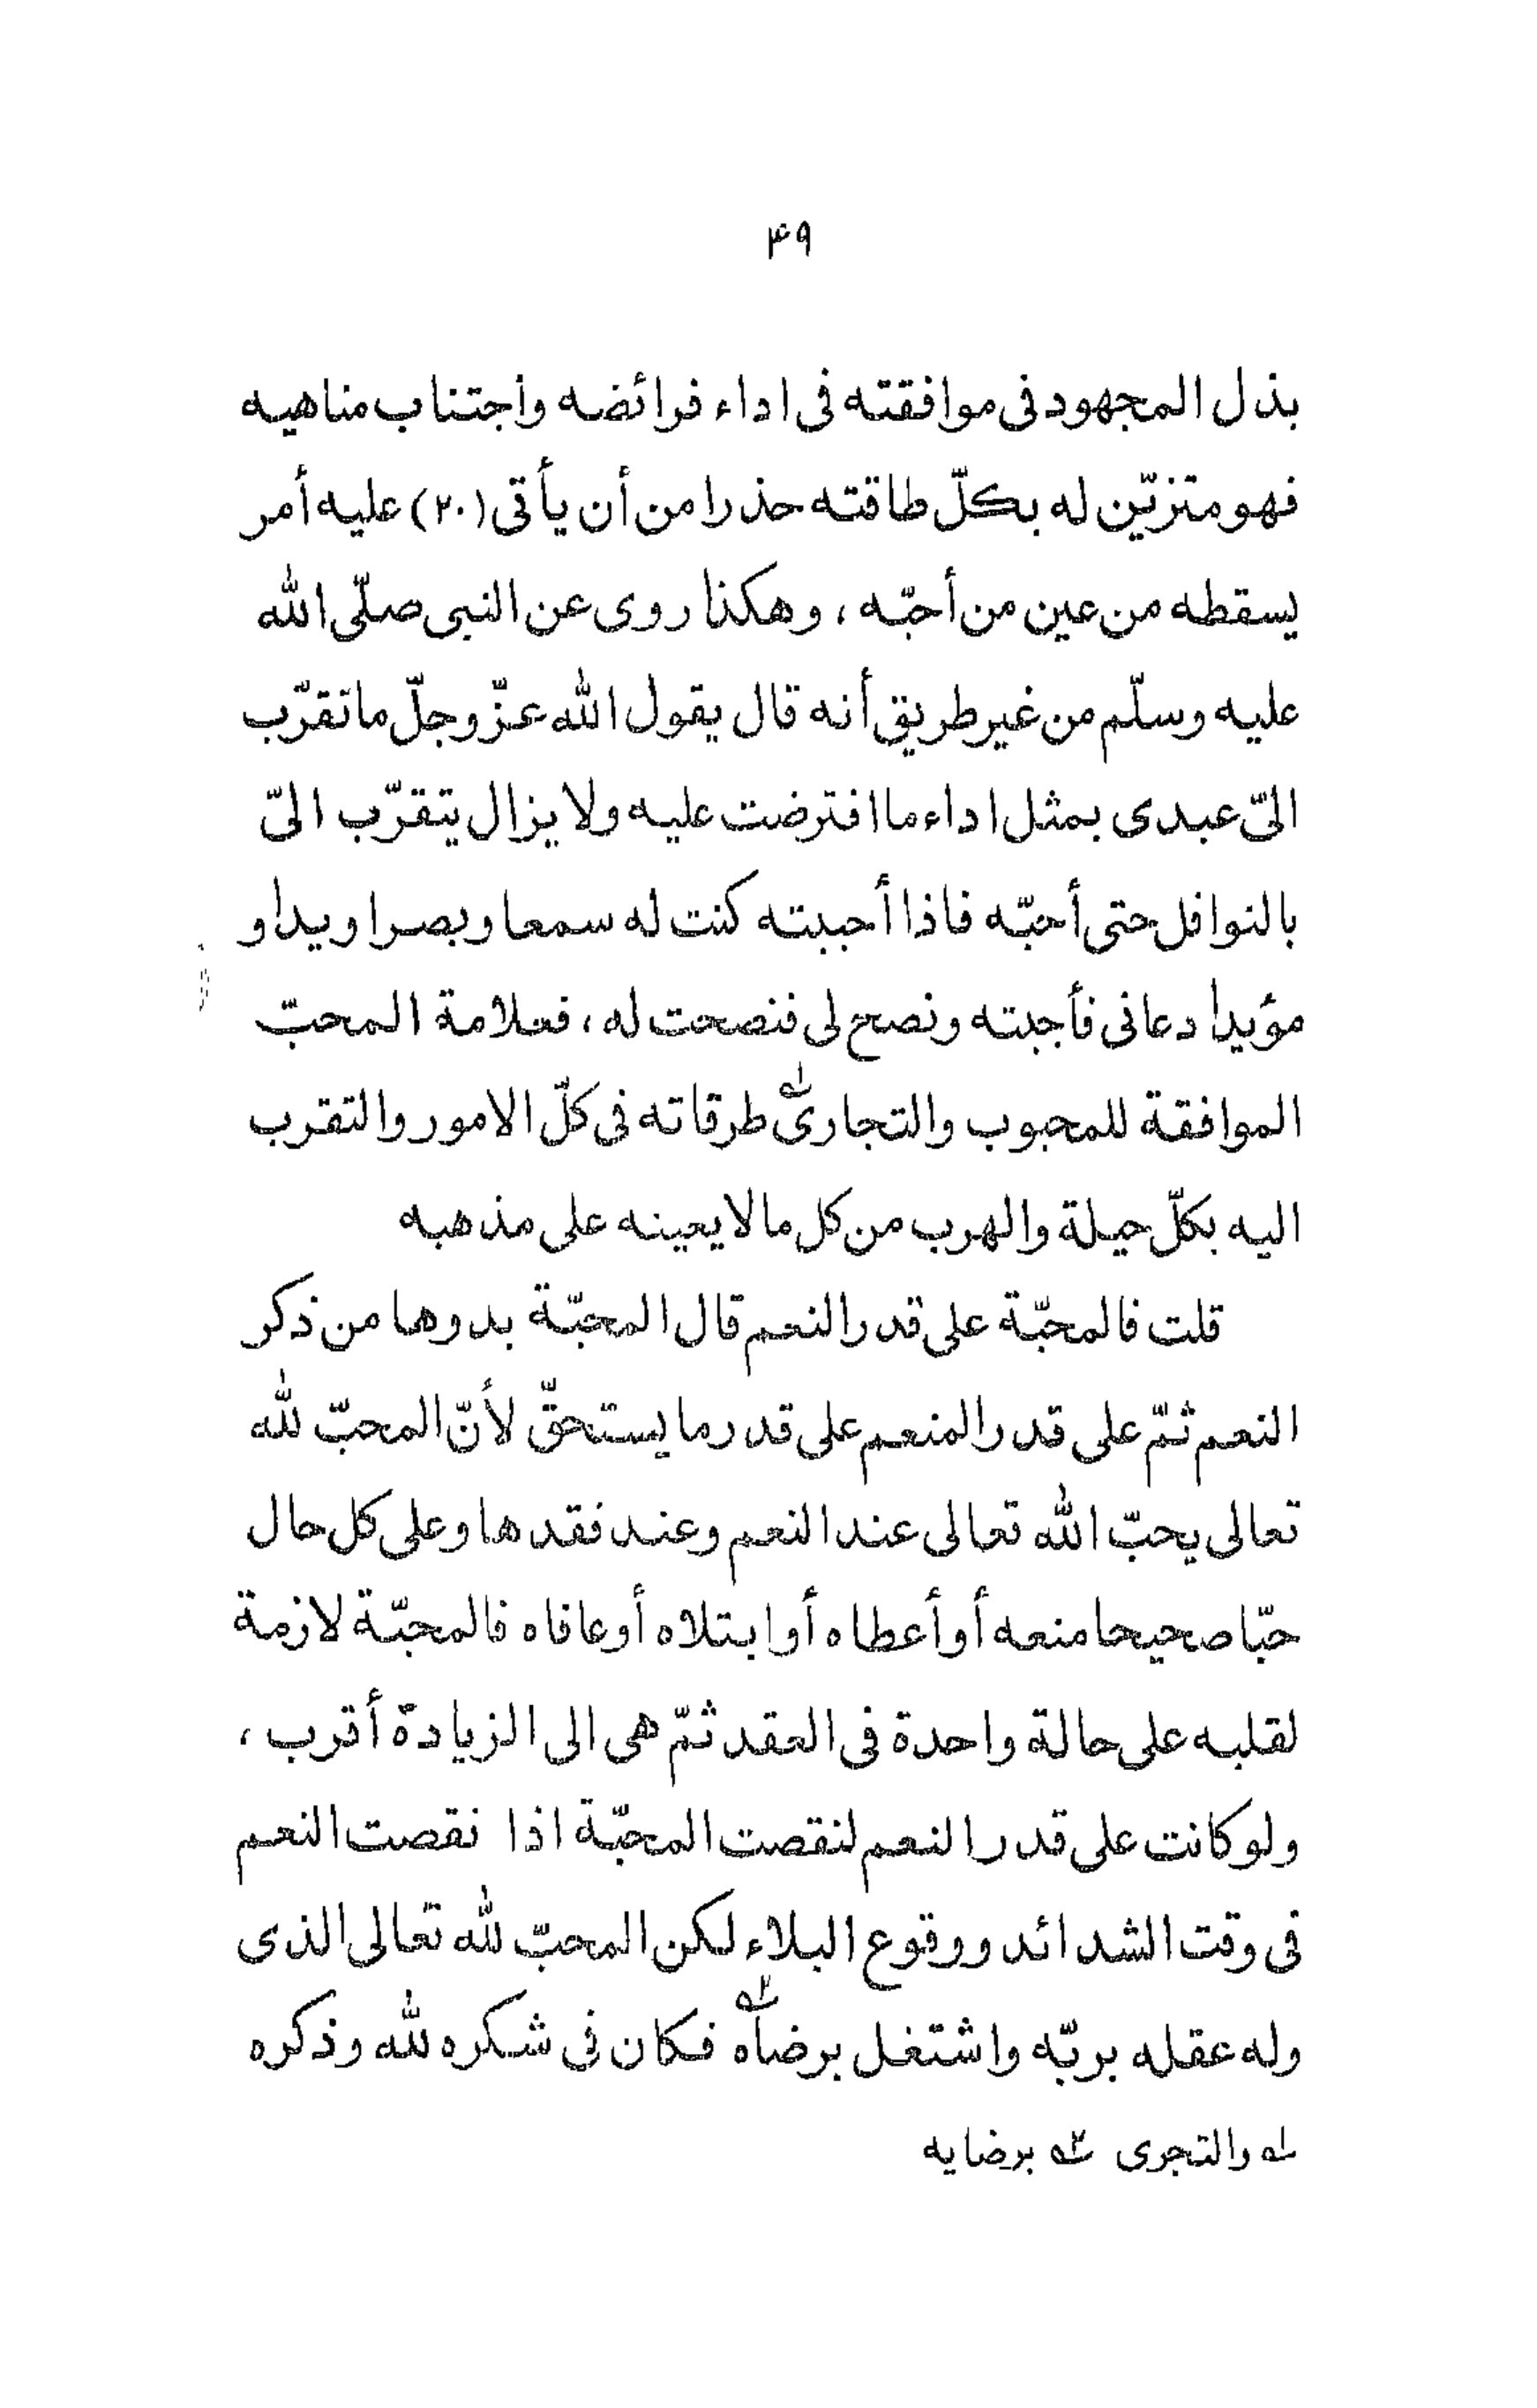 ۴۹
بذل المجهود فى موافقته فى اداء فرائضه واجتناب مناهيه
فهو متزيّن له بكلّ طاقته حذرا من أن يأتى (۲۰) عليه أمر
يسقطه من عين من أحبّه ، وهكذا روى عن النبى صلّى الله
عليه وسلّم من غير طريق أنه قال يقول الله عزّ وجلّ ما تقرّب
الىّ عبدى بمثل اداء ما افترضت عليه ولا يزال يتقرّب الىّ
بالنوافل حتى أحبّه فاذا أحببته كنت له سمعا وبصرا ويدا و
مؤيدا دعانى فأجبته ونصح لى فنصحت له ، فعلامة المحبّ
الموافقة للمحبوب والتجارى۱ طرقاته فى كلّ الامور والتقرب
اليه بكلّ حيلة والهرب من كل ما لا يعينه على مذهبه
قلت فالمحبّة على قدر النعم قال المحبّة بدوها من ذكر
النعم ثمّ على قدر المنعم على قدر ما يستحقّ لأنّ المحبّ لله
تعالى يحبّ الله تعالى عند النعم وعند فقدها وعلى كل حال
حبّا صحيحا منعه أو أعطاه أو ابتلاه أو عافاه فالمحبّة لازمة
لقلبه على حالة واحدة فى العقد ثمّ هى الى الزيادة أقرب ،
ولو كانت على قدر النعم لنقصت المحبّة اذا نقصت النعم
فى وقت الشدائد ووقوع البلاء لكن المحبّ لله تعالى الذى
وله عقله بربّه واشتغل برضاه۲ فكان فى شكره لله وذكره
۱ والتجرى ۲ برضايه